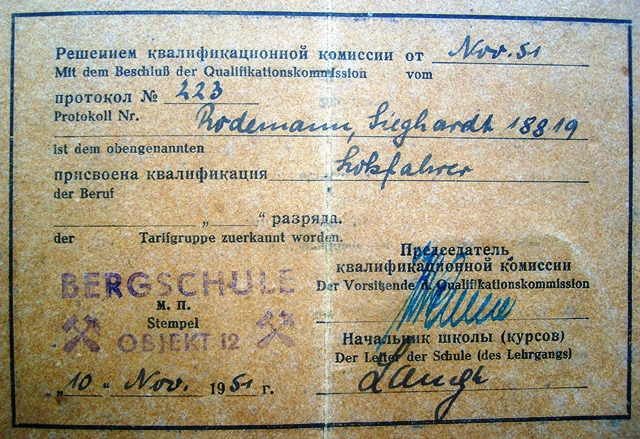 Решением квалификационной комиссии от Nov. 51
Mit dem Beschluß der Qualifikationskommission vom
протокол № 223
Protokoll Nr. Rodemann, Sieghardt 18819
ist dem obengenannten
присвоена квалификация Lokfahrer
der Beruf
„ “ разряда.
der Tarifgruppe zuerkannt worden.
Председатель
квалификационной комиссии
Der Vorsitzende d. Qualifikationskommission
BERGSCHULE
М. П.
Stempel
OBJEKT 12
Начальник школы (курсов)
Der Leiter der Schule (des Lehrgangs)
„10“ Nov. 1951 г.